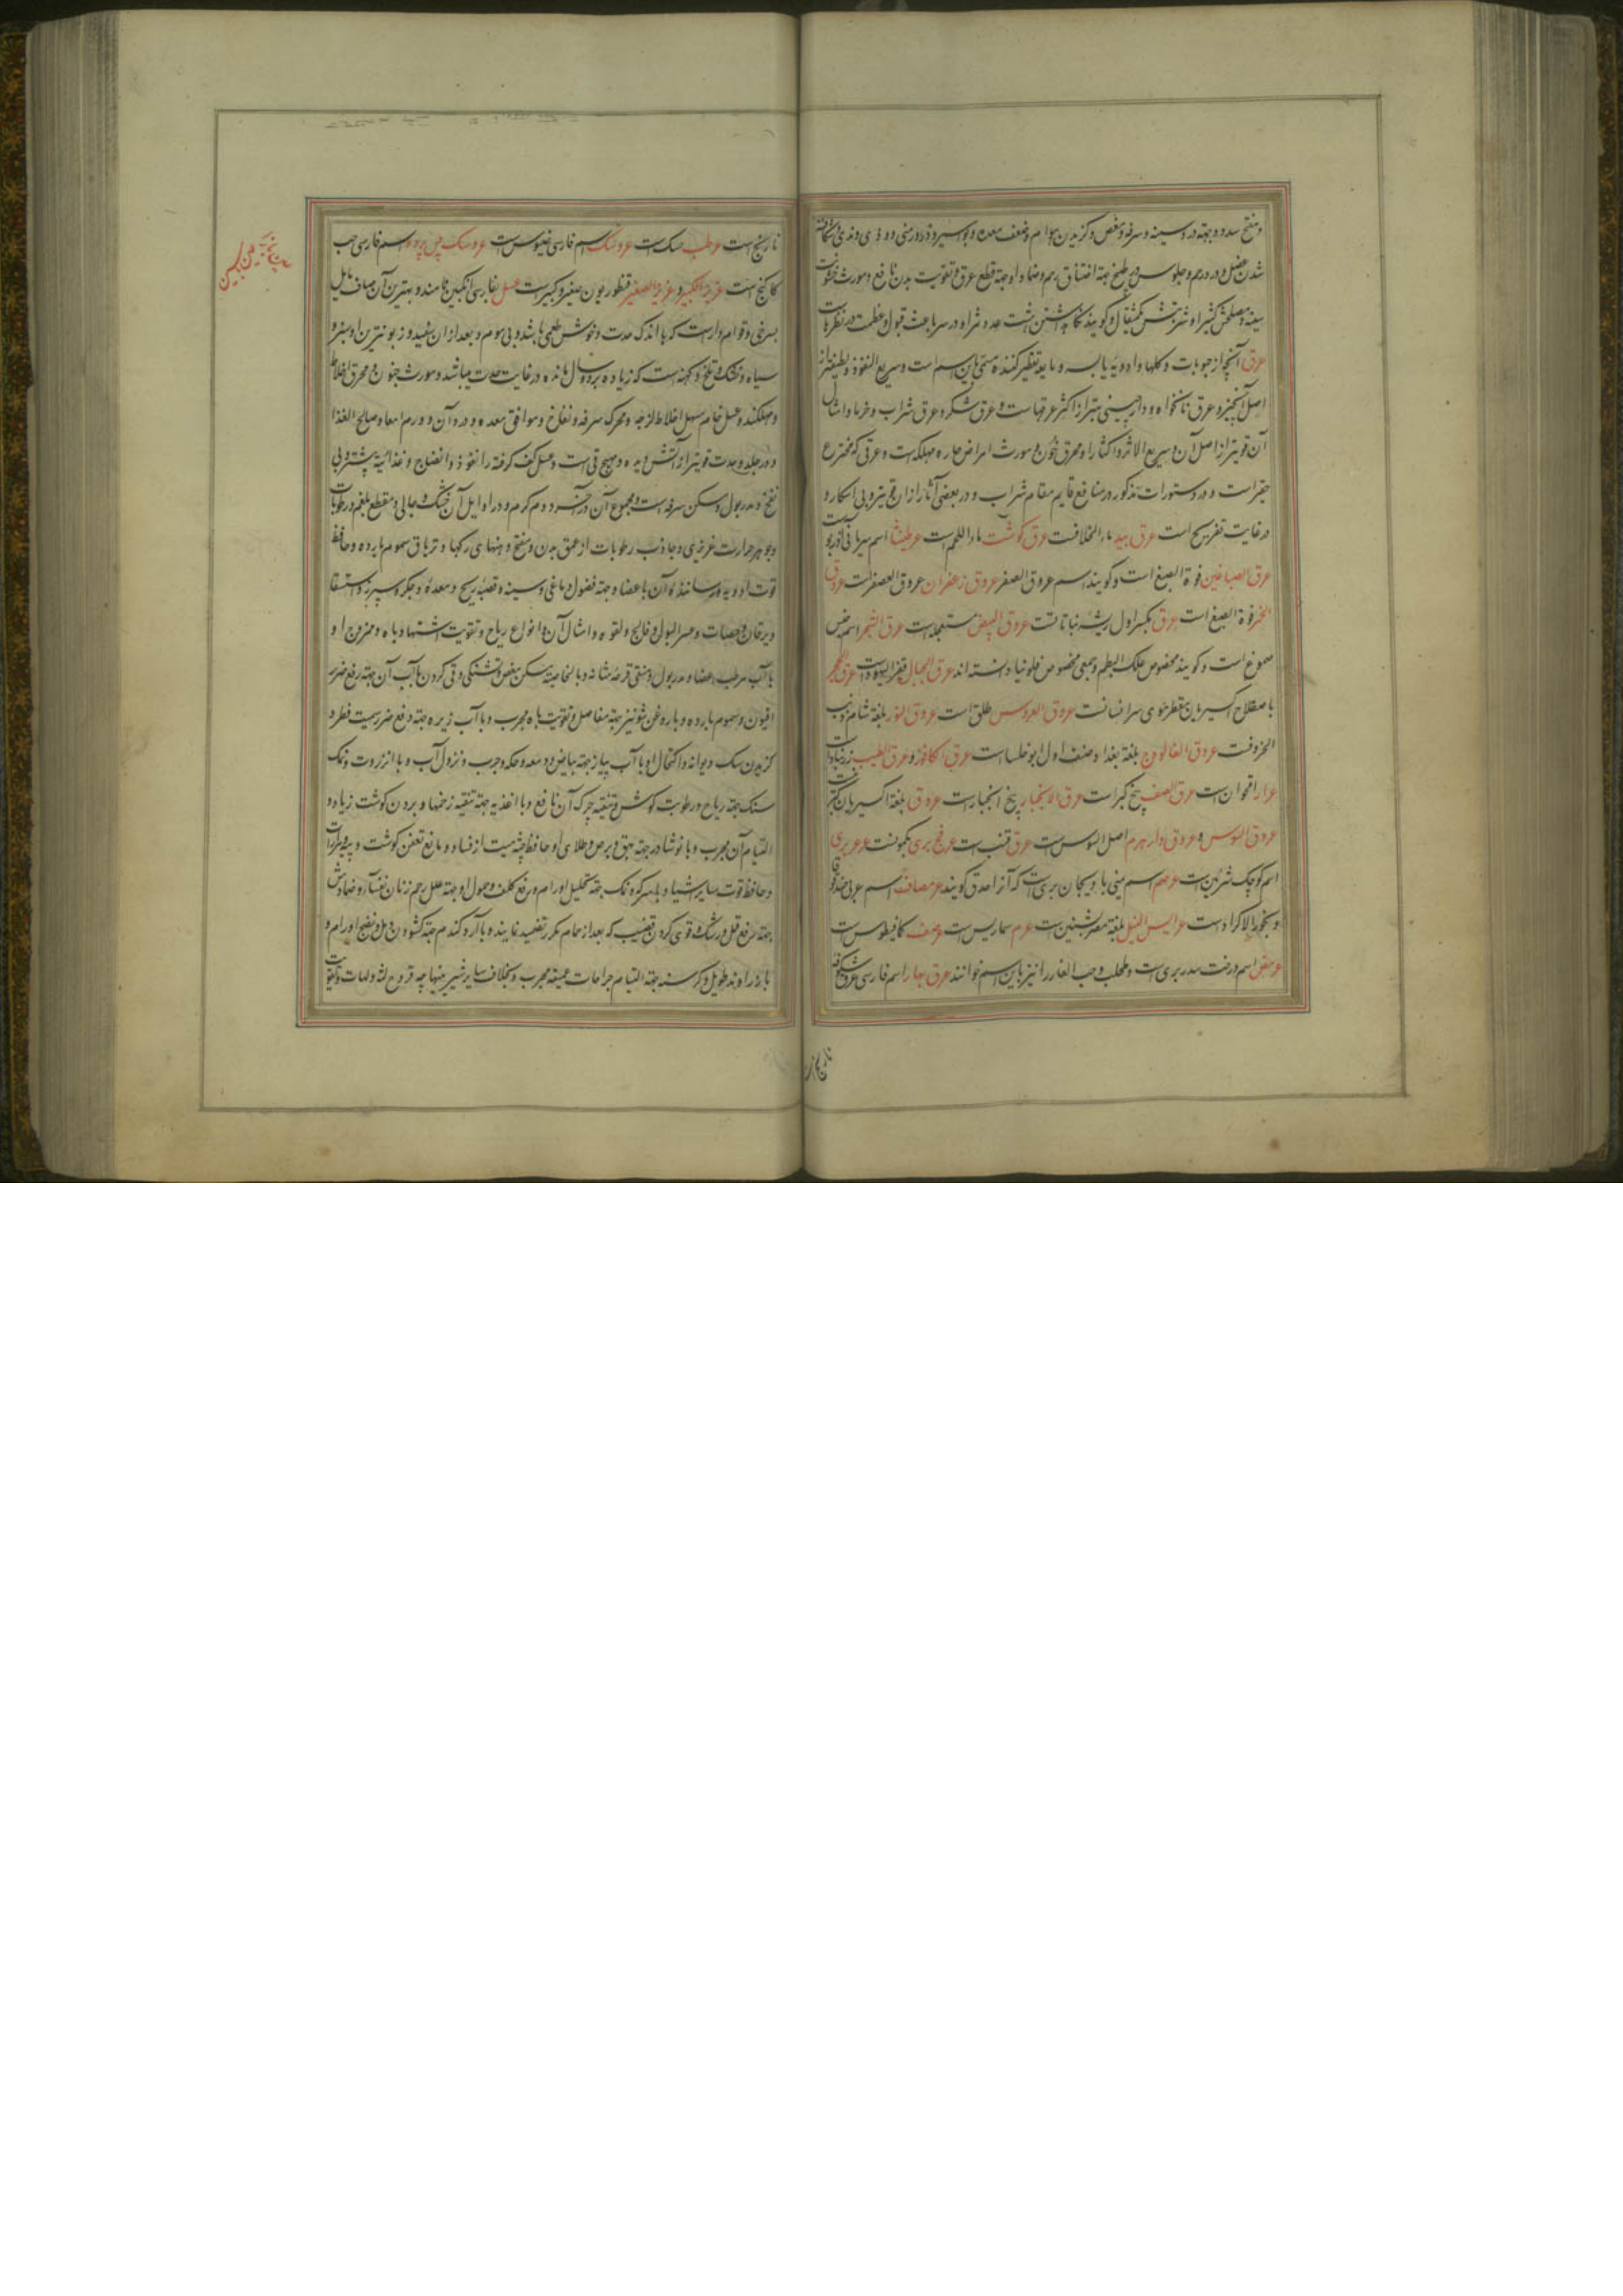 و مفتح سدد و جهته درد سینه و سرفه و مغص و گزیدن هوام و ضعف معده و بواسیر و ذرور منی و ودی و مذی و شکافته
شدن عضل و درد رحم و جلوس در طبیخ جهته اختناق رحم و ضماد او جهته قطع عرق و تقویت بدن نافع و مورث خشونت
سینه و مصلحش کثیرا و شربتش یکمثقال و گویند نگاه داشتن هشت عدد شراو در سر باعث قبول و عظمت در نظرهاست
عرق آنچه از حبوبات و گلها و ادویه یابسه و مایعه تقطیر کنند مسمی باین اسم است و سریع النفوذ و لطیفتر از
اصل آنچیز و عرق نانخواه و دارچینی بهتر از اکثر عرقهاست و عرق شکر و عرق شراب و خرما و امثال
آن قویتر از اصل آن و سریع الاثر و اکثار او محرق خون و مورث امراض حاره مهلکه است و عرقی که مخترع
حقیر است و در دستورات مذکور در منافع قایم مقام شراب و در بعضی آثار از ان قویتر و بی اسکار و
در غایت تفریح است عرق بید ماء الخلافست عرق گوشت ماء اللحم است عرطنیثا اسم سریانی آذربو
عرق الصباغین فوة الصبغ است و گویند اسم عروق الصفر عروق زعفران عروق العصفر است عروق
الحمر فوة الصبغ است عرق بکسر اول ریشه نباتاتست عروق البیض مستعجله است عرق الشجر اسم جنس
صموغ است و گویند مخصوص علک البطم و جمعی مخصوص فلونیا دانسته اند عرق الجبال قفر الیهود است عرق الحجر
باصطلاح اکسیریان مقطر موی سر انسانست عروق العروس طلق است عروق النور بلغة شام زبیب
الحروفست عروق الفالوذج بلغة بغداد صنف اول ابوخلسا است عرق الکافور و عرق الطیب زرنباد است
عرار اقحوان است عرق اللصف بیخ کبر است عرق الانجبار بیخ انجبار است عروق بلغة اکسیریان
عروق السوس و عروق دار هرم اصل السوس است عرق قنب است عرفج بری یکونست عرعر بری
اسم کوچک شربین است عرصم اسم یمنی بادنجان بری است که آنرا حدق گویند عرصاف اسم عربی
و بخور الاکراد است عرایس النیل بلغة مصر بشنین است عرم سماریس است عرصف کمافیطوس است
عرمض اسم درخت سدر بری است و طحلب و حب الغار را نیز باین اسم خوانند عرق بهار اسم فارسی عرق شکوفه
نارنج
نارنج است عرطب حسک است عروسک اسم فارسی است عروسک پس پرده اسم فارسی حب
کاکنج است عزیز الکبیر و عزیز الصغیر قنطوریون صغیر و کبیر است عسل بفارسی انگبین نامند و بهترین آن صاف مایل
بسرخی و قوام دار است که با اندک حدت و خوش طعمی باشد و بی موم و بعد از ان سفید و زبونترین او سبز و
سیاه و خشک و تلخ و کهنه است که زیاده بر دو سال مانده در غایت حدت میباشد و مورث جنون و محرق اخلاط
و مهلکند و عسل خام مسهل اخلاط لزجه و محرک سرفه و نفاخ و موافق معده و درد آن و ورم امعا و صالح الغذا
و در جلد و حدت قویتر از آتش دیده و مهیج قی است و عسل کف گرفته را نفوذ و انضاج و غذائیة بیشتر و بی
نفخ و مدر بول و مسکن سرفه است و مجموع آن در آخر دوم گرم و در اوایل آن خشک و جالی و مقطع بلغم و رطوبات
و جوهر حرارت غریزی و جاذب رطوبات از عمق بدن و مفتح دهنهای رگها و تریاق سموم بارده و حافظ
قوت ادویه و رسانندۀ آن باعضا و جهته فضول دماغی و سینه و قصبه ریه و معده و جگر و سپرز و استسقا
و یرقان و حصات و عسر البول و فالج و لقوه و امثال آن و انواع ریاح و تقویت اشتها و باه و ممزوج او
با آب مرطب اعضا و مدر بول و منقی قرحه مثانه و بالخاصیة مسکن مغص و تشنگی و قی کردن با آب آن جهته رفع ضرر
افیون و سموم بارده و با روغن شونیز جهته مفاصل و تقویت باه مجرب و با آب زیره جهته دفع ضرر سمیت فطر و
گزیدن سگ دیوانه و اکتحال او با آب پیاز جهته بیاض و دمعه و حکه و جرب و نزول آب و با انزروت و نمک
سنگ جهته ریاح و رطوبت گوش و تنقیه چرک آن نافع و با اغذیه جهته تنقیه زخمها و بردن گوشت زیاد و
التیام آن مجرب و با نوشادر جهته بهق و برص و طلای او حافظ جثه میت از فساد و مانع تعفن گوشت و پیه و میوها
و حافظ قوت سایر اشیا و با سرکه و نمک جهته تحلیل اورام و رفع کلف و حمول او جهته علل رحم زنان نفسا و ضمادش
جهته رفع قمل و رشک و قوی کردن قضیب که بعد از حمام مکرر تضمید نمایند و با آرد گندم جهته گشودن دمل و نضج اورام و
با زراوند طویل و کرسنه جهته التیام جراحات عمیقه مجرب و بخلاف سایر شیرینیها چه قروح لثه و لهات و تقویت